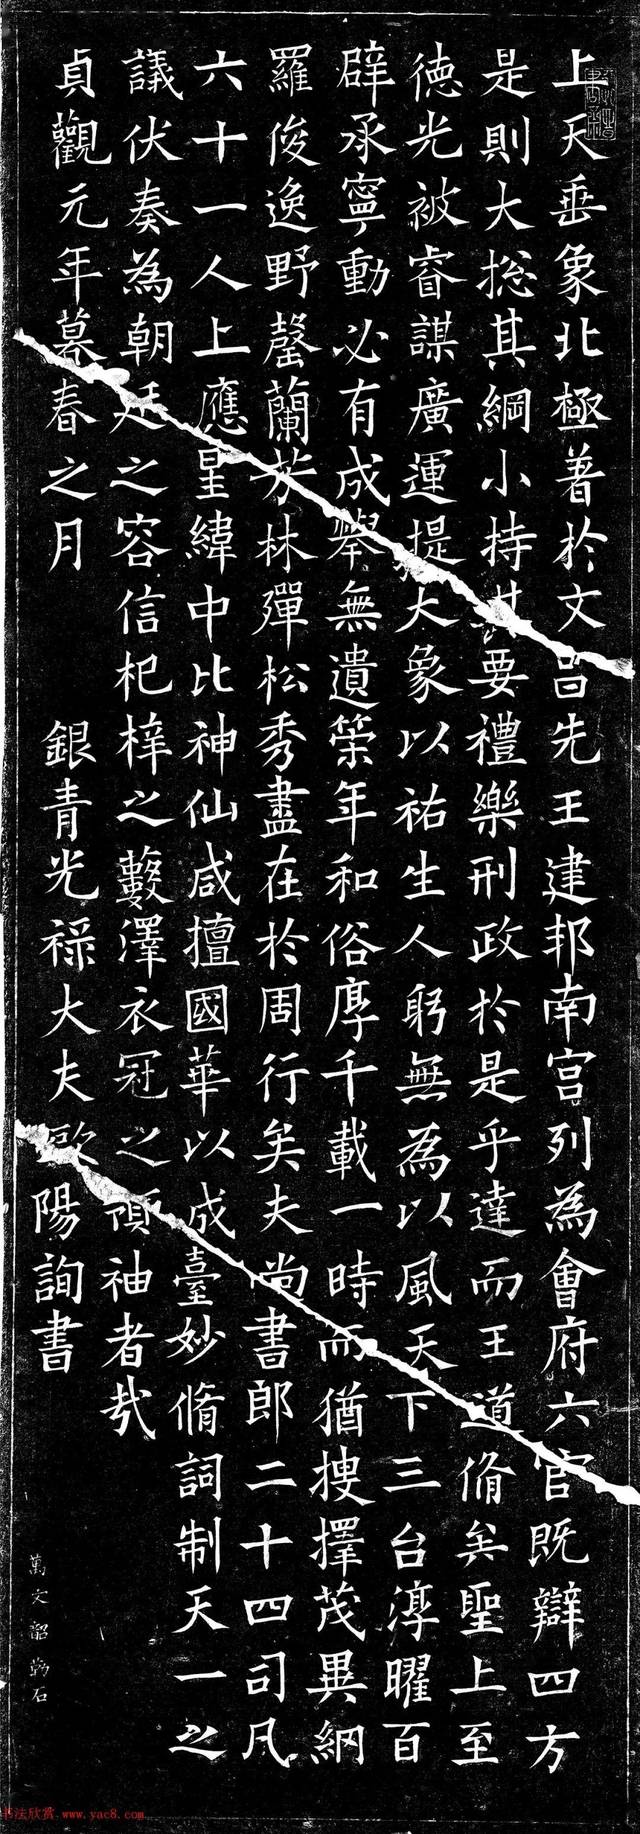 上天垂象北極著於文昌先王建邦南宮列為會府六官既辯四方
是則大揔其綱小持其要禮樂刑政於是乎達而王道脩矣聖上至
德光被睿謀廣運提大象以祐生人躬無為以風天下三台淳曜百
辟承寧動必有成舉無遺筞年和俗厚千載一時而猶搜擇茂異網
羅俊逸野罄蘭芳林殫松秀盡在於周行矣夫尚書郎二十四司凡
六十一人上應星緯中比神仙咸擅國華以成臺妙脩詞制天一之
議伏奏為朝廷之容信杞梓之藪澤衣冠之領袖者㢤
貞觀元年暮春之月 銀青光祿大夫歐陽詢書
萬文韶勒石
书法欣赏 www.yac8.com